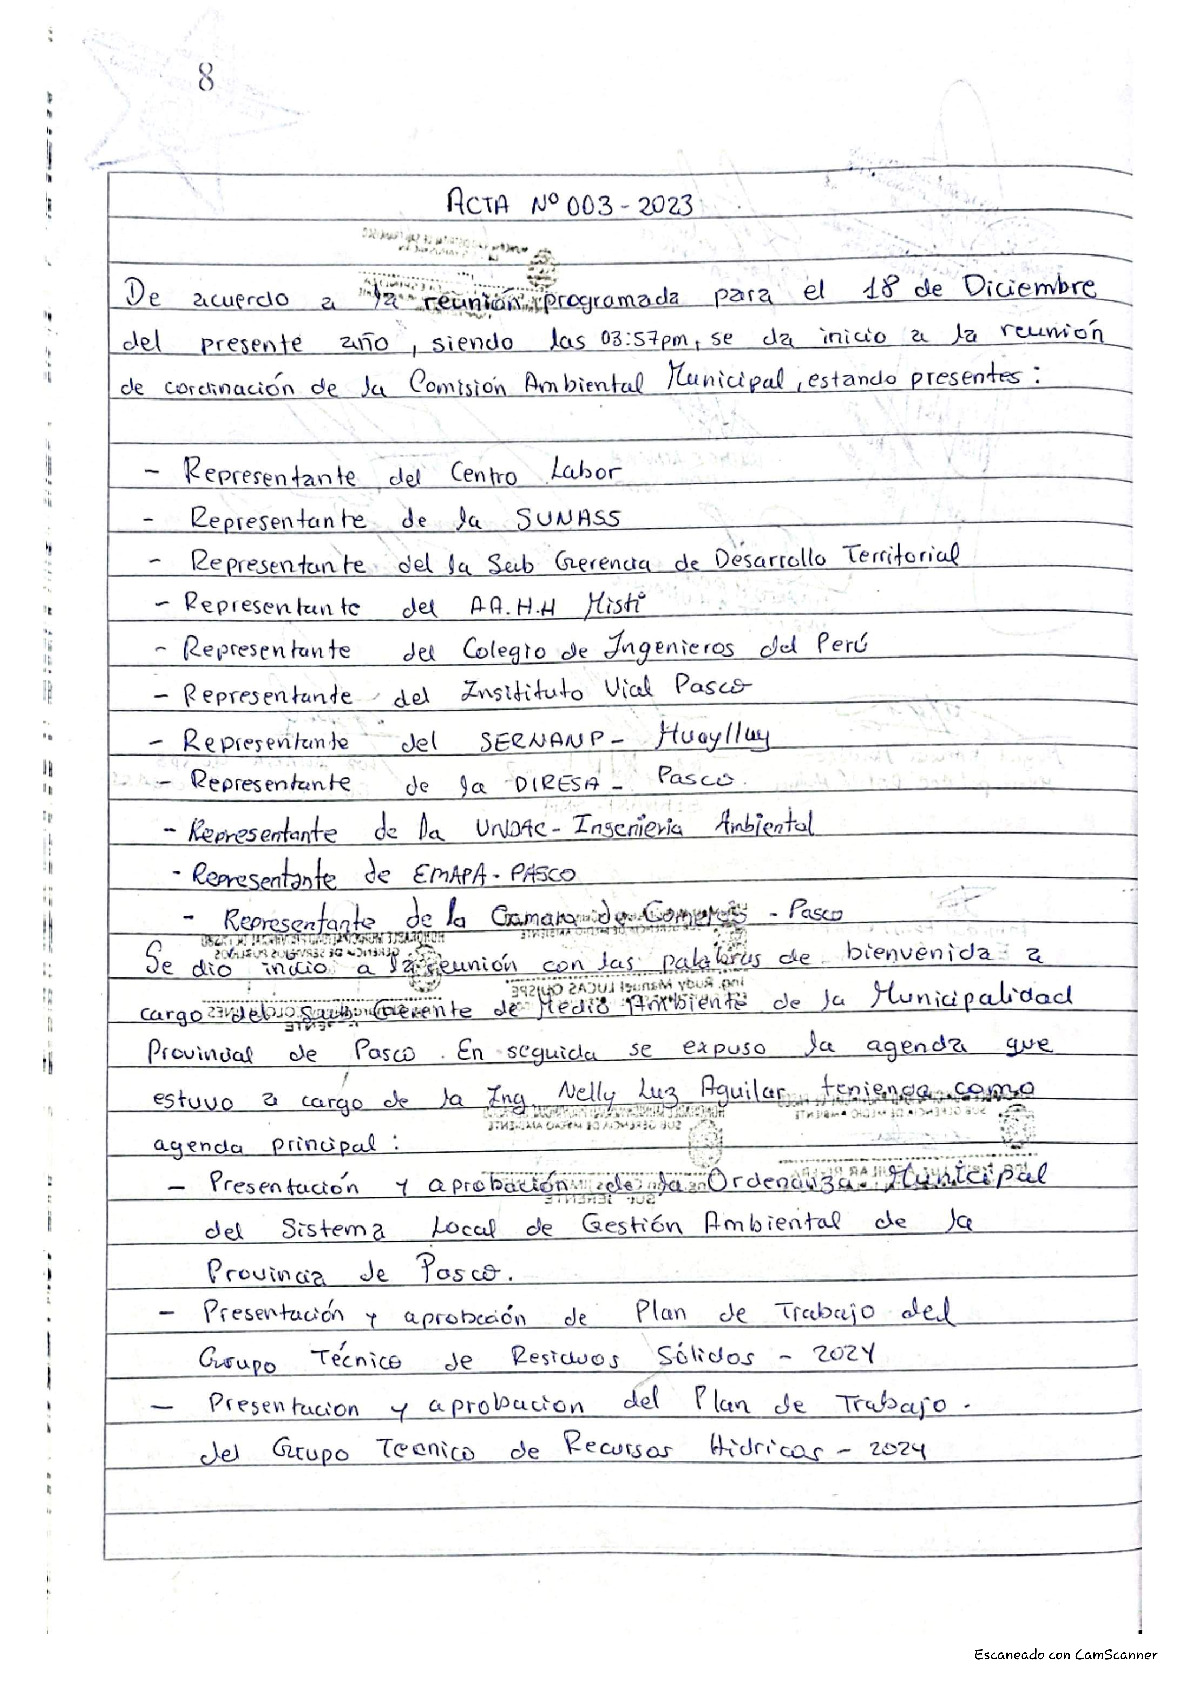 8
ACTA Nº 003 - 2023
De acuerdo a la reunión programada para el 18 de Diciembre
del presente año, siendo las 03:57pm, se da inicio a la reunión
de cordinación de la Comisión Ambiental Municipal, estando presentes:
- Representante del Centro Labor
- Representante de la SUNASS
- Representante del la Sub Gerencia de Desarrollo Territorial
- Representante del AA.H.H Misti
- Representante del Colegio de Ingenieros del Perú
- Representante del Insitituto Vial Pasco
- Representante del SERNANP - Huayllay
- Representante de la DIRESA - Pasco.
- Representante de la UNDAC - Ingenieria Ambiental
- Representante de EMAPA - PASCO
- Representante de la Camara de Comercio - Pasco
Se dio inicio a la reunión con las palabras de bienvenida a
cargo del Sub Gerente de Medio Ambiente de la Municipalidad
Provincial de Pasco. En seguida se expuso la agenda que
estuvo a cargo de la Ing. Nelly Luz Aguilar, teniendo como
agenda principal:
- Presentación y aprobación de la Ordenanza Municipal
del Sistema Local de Gestión Ambiental de la
Provincia de Pasco.
- Presentación y aprobación de Plan de Trabajo del
Grupo Técnico de Residuos Sólidos - 2024
- Presentacion y aprobacion del Plan de Trabajo.
del Grupo Tecnico de Recursos Hidricos - 2024
Escaneado con CamScanner